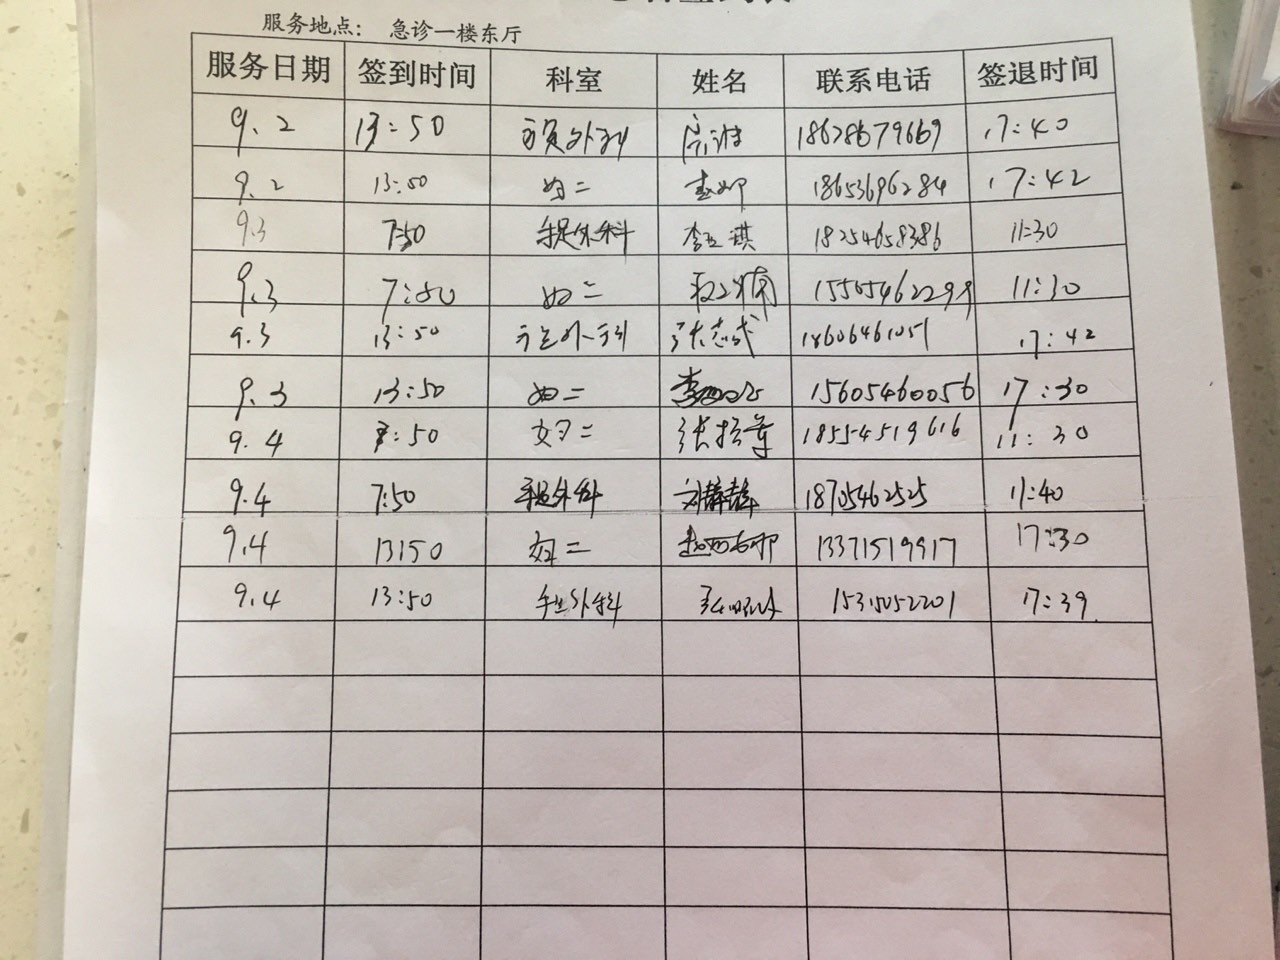 服务地点： 急诊一楼东厅
服务日期 签到时间 科室 姓名 联系电话 签退时间
9.2 13:50 18678679669 17:40
9.2 13:50 妇二 18653696284 17:42
9.3 7:50 手足外科 李亚琪 18254658386 11:30
9.3 7:50 妇二 15565462299 11:30
9.3 13:50 手足外科 张志成 18606461051 17:42
9.3 13:50 妇二 15605460056 17:30
9.4 7:50 妇二 18554519616 11:30
9.4 7:50 手足外科 刘静静 18705462525 11:40
9.4 13150 妇二 13371519917 17:30
9.4 13:50 手足外科 15315052201 17:39